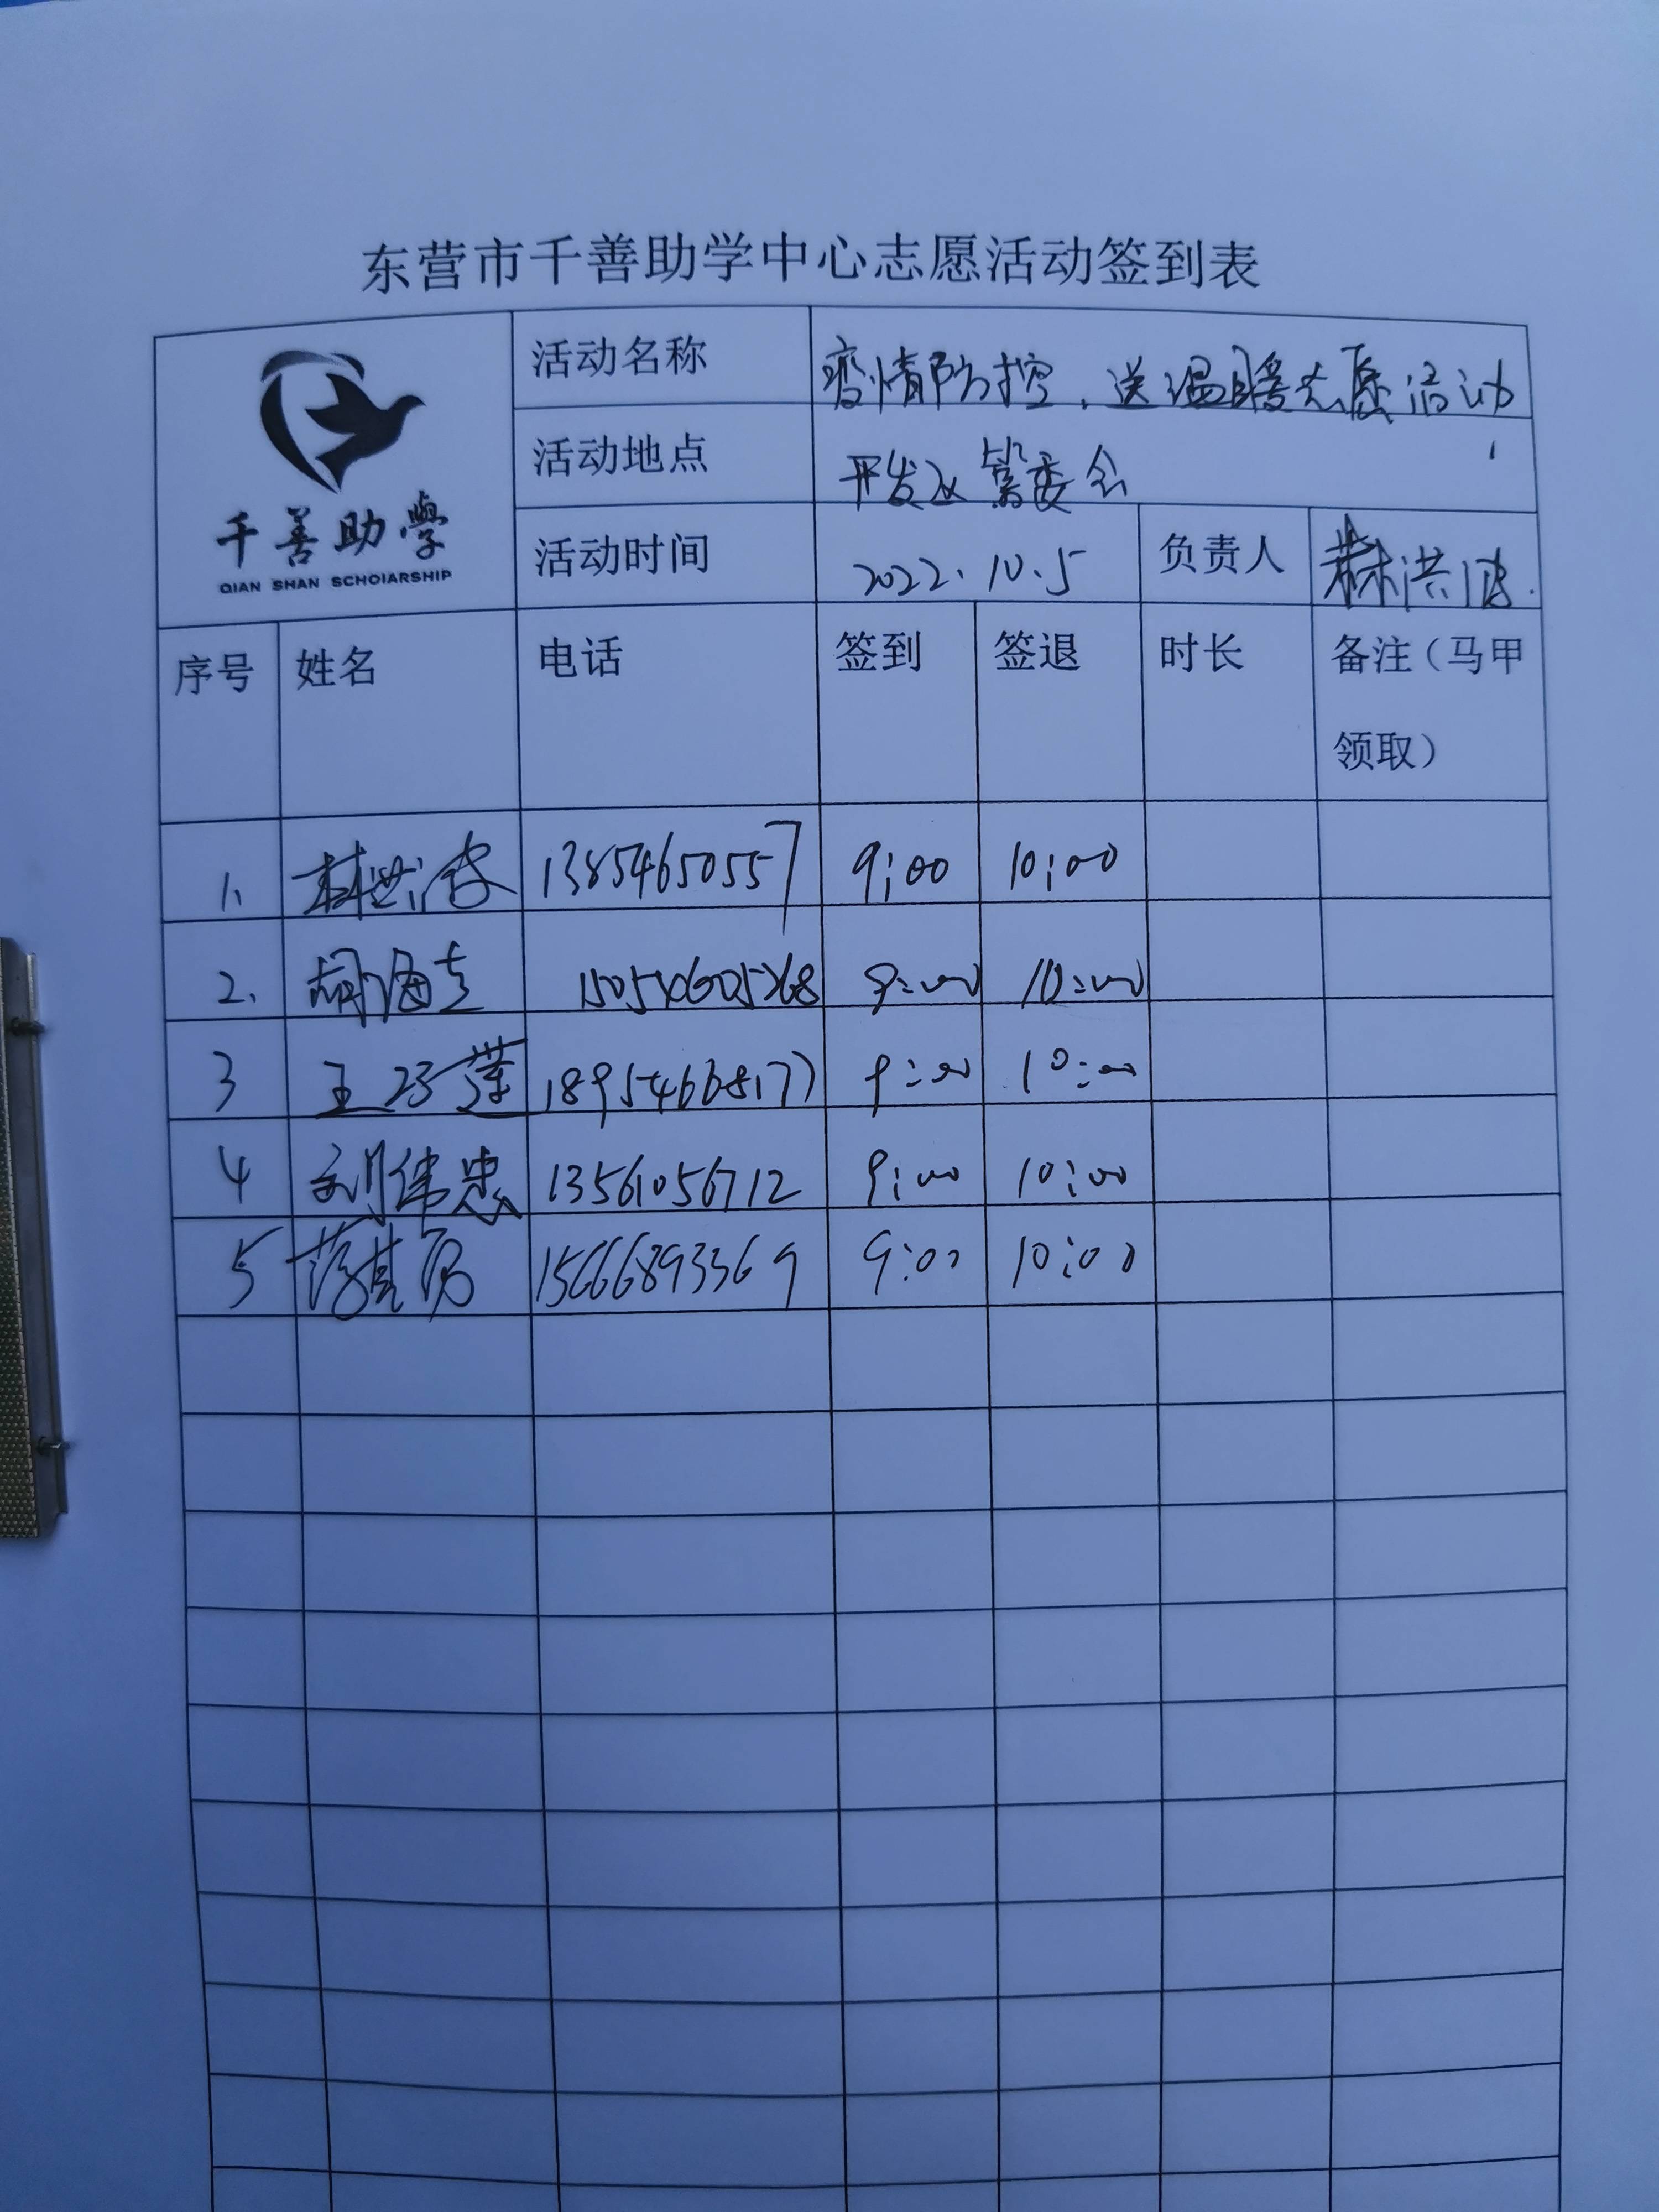 东营市千善助学中心志愿活动签到表
千善助學
QIAN SHAN SCHOIARSHIP
活动名称 疫情防控、送温暖志愿活动
活动地点 开发区管委会
活动时间 2022.10.5 负责人 林洪波
序号 姓名 电话 签到 签退 时长 备注（马甲
领取）
1、 林洪波 13854650557 9:00 10:00
2、 胡海 9:00 10:00
3 王 18954668177 9:00 10:00
4 刘伟忠 13561056712 9:00 10:00
5 15666893369 9:00 10:00